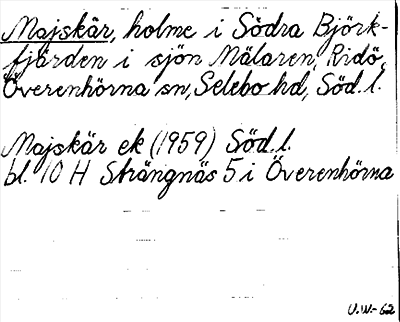 Majskär, holme i Södra Björk-
fjärden i sjön Mälaren, Ridö,
Överenhörna sn, Selebo hd, Söd. l.
Majskär ek (1959) Söd. l.
bl. 10 H Strängnäs 5 i Överenhörna
U.W.-62